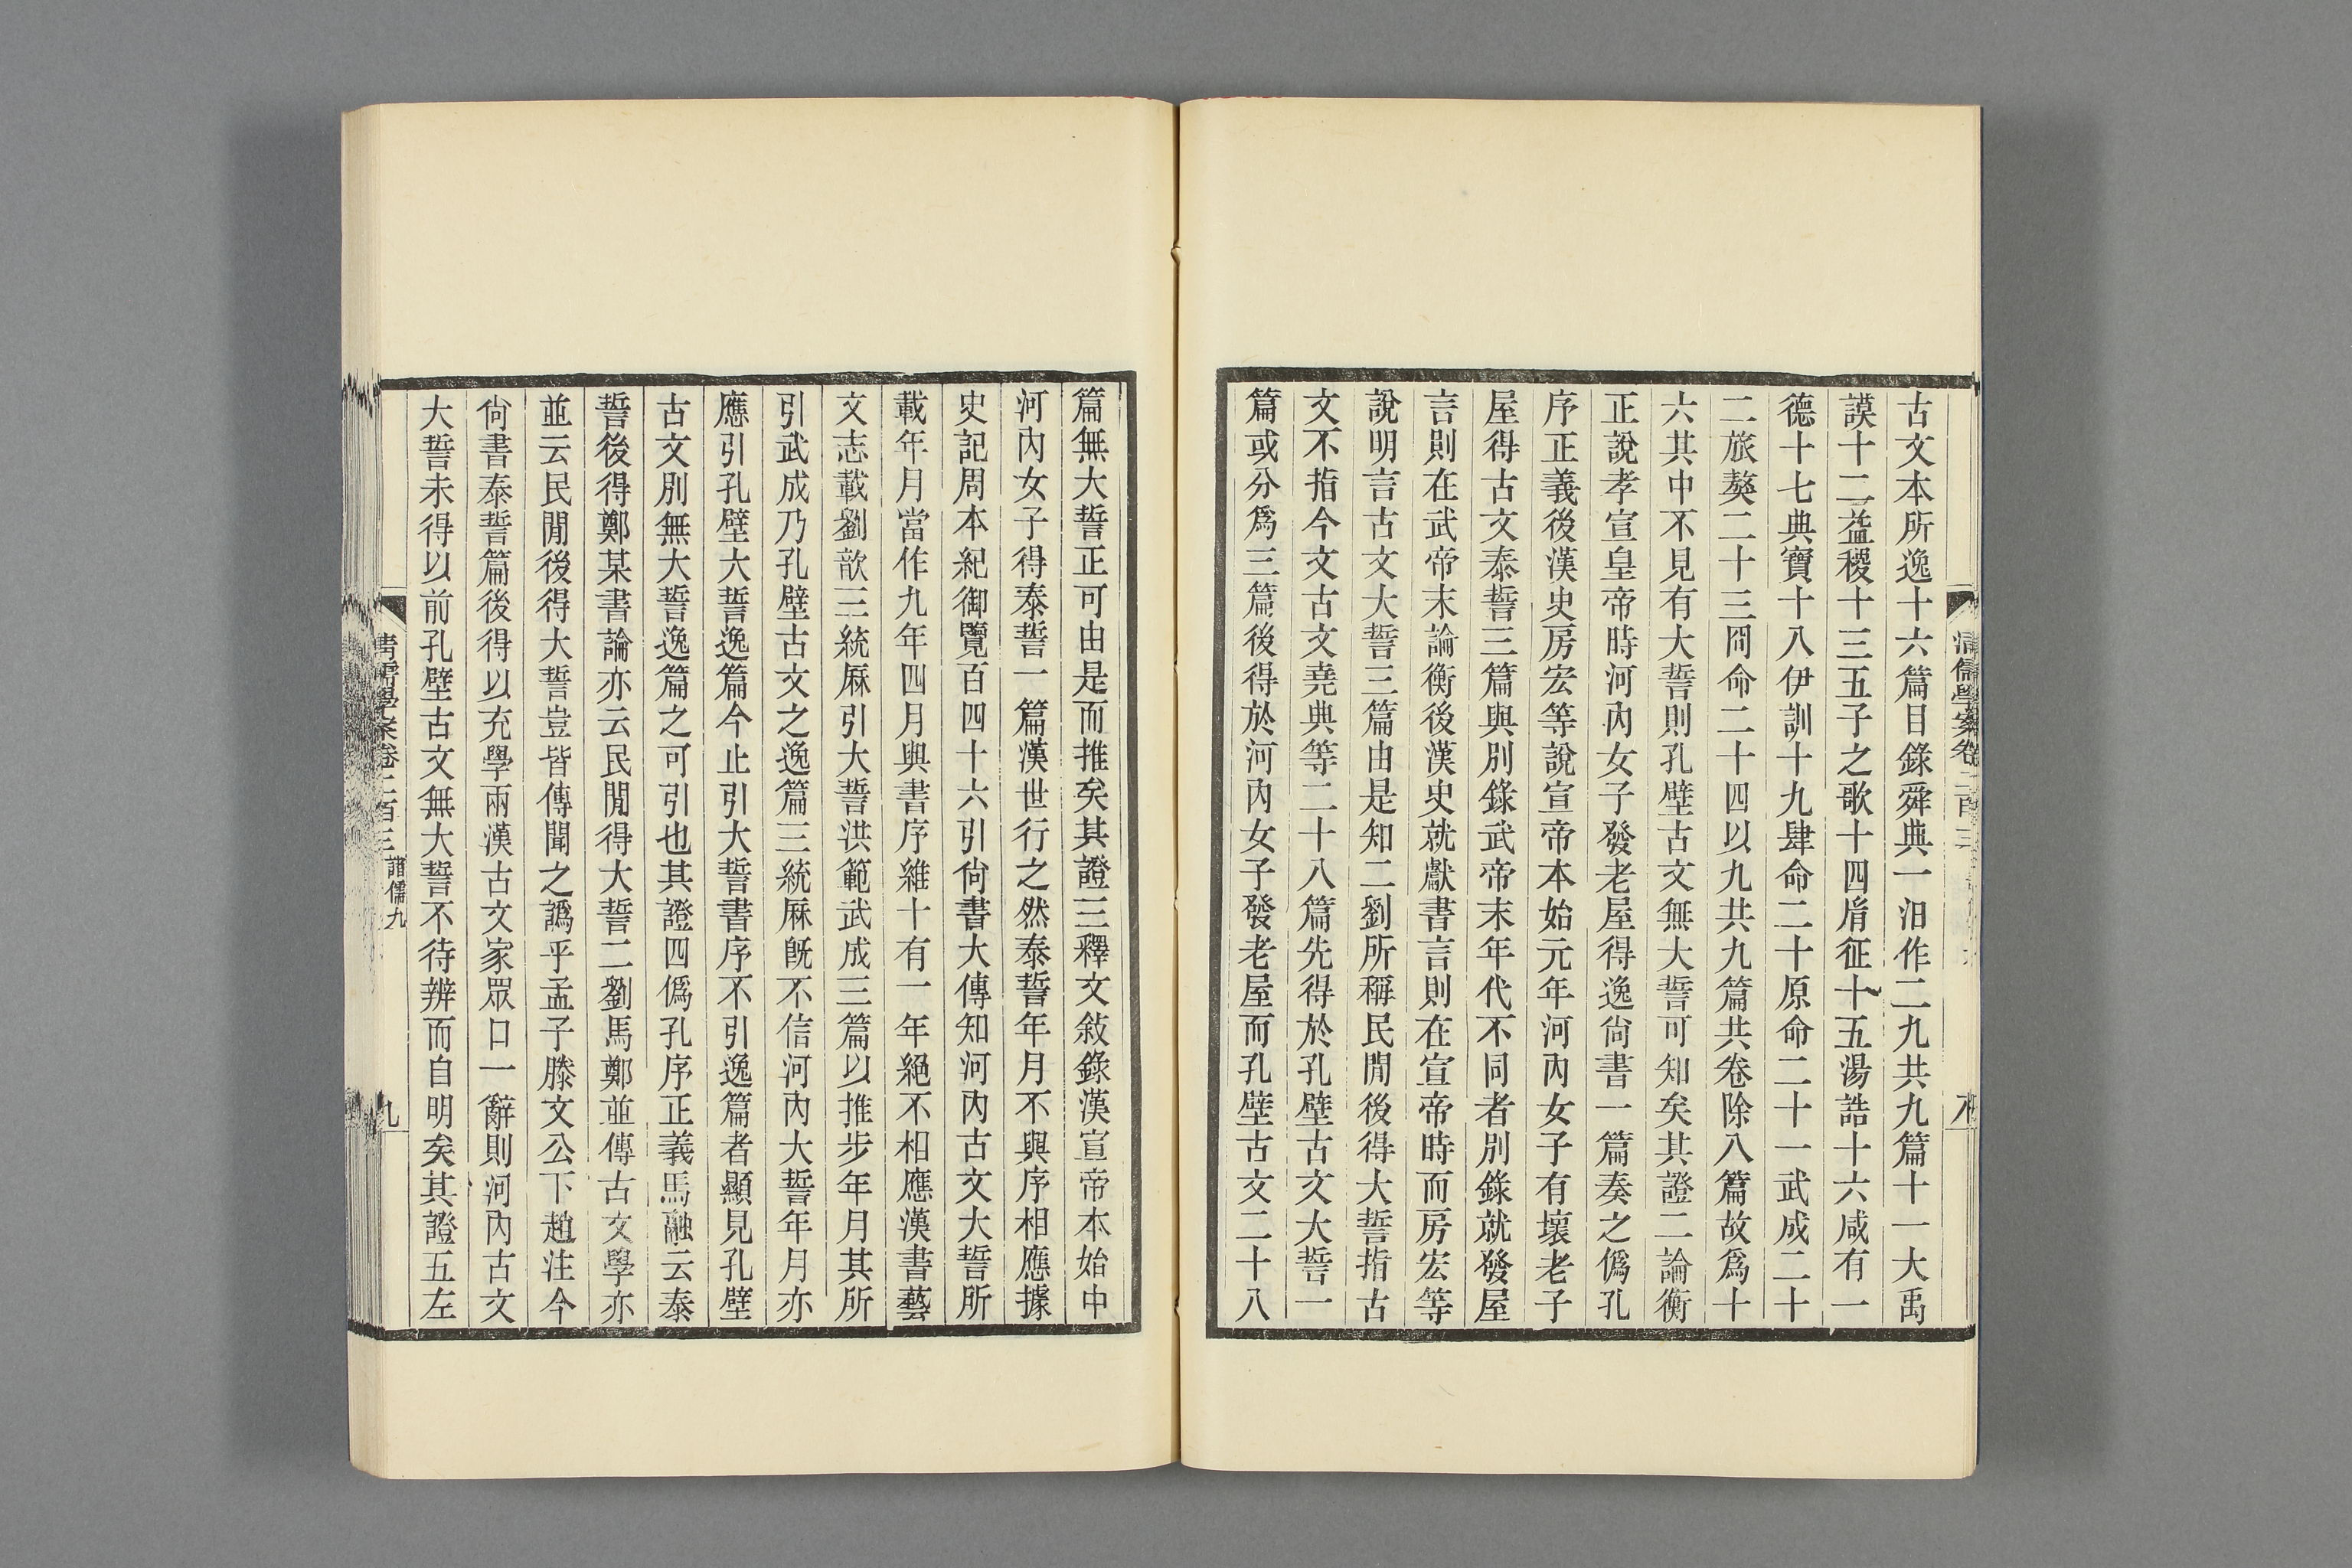 古文本所逸十六篇目錄舜典一汨作二九共九篇十一大禹
謨十二益稷十三五子之歌十四胤征十五湯誥十六咸有一
德十七典寶十八伊訓十九肆命二十原命二十一武成二十
二旅獒二十三冏命二十四以九共九篇共卷除八篇故爲十
六其中不見有大誓則孔壁古文無大誓可知矣其證二論衡
正說孝宣皇帝時河內女子發老屋得逸尙書一篇奏之僞孔
序正義後漢史房宏等說宣帝本始元年河內女子有壞老子
屋得古文泰誓三篇與別錄武帝末年代不同者別錄就發屋
言則在武帝末論衡後漢史就獻書言則在宣帝時而房宏等
說明言古文大誓三篇由是知二劉所稱民閒後得大誓指古
文不指今文古文堯典等二十八篇先得於孔壁古文大誓一
篇或分爲三篇後得於河內女子發老屋而孔壁古文二十八
清儒學案卷二百三
八
篇無大誓正可由是而推矣其證三釋文敘錄漢宣帝本始中
河內女子得泰誓一篇漢世行之然泰誓年月不與序相應據
史記周本紀御覽百四十六引尙書大傳知河內古文大誓所
載年月當作九年四月與書序維十有一年絕不相應漢書藝
文志載劉歆三統厤引大誓洪範武成三篇以推步年月其所
引武成乃孔壁古文之逸篇三統厤旣不信河內大誓年月亦
應引孔壁大誓逸篇今止引大誓書序不引逸篇者顯見孔壁
古文別無大誓逸篇之可引也其證四僞孔序正義馬融云泰
誓後得鄭某書論亦云民閒得大誓二劉馬鄭並傳古文學亦
並云民閒後得大誓豈皆傳聞之譌乎孟子滕文公下趙注今
尙書泰誓篇後得以充學兩漢古文家眾口一辭則河內古文
大誓未得以前孔壁古文無大誓不待辨而自明矣其證五左
清儒學案卷二百三 諸儒九
九